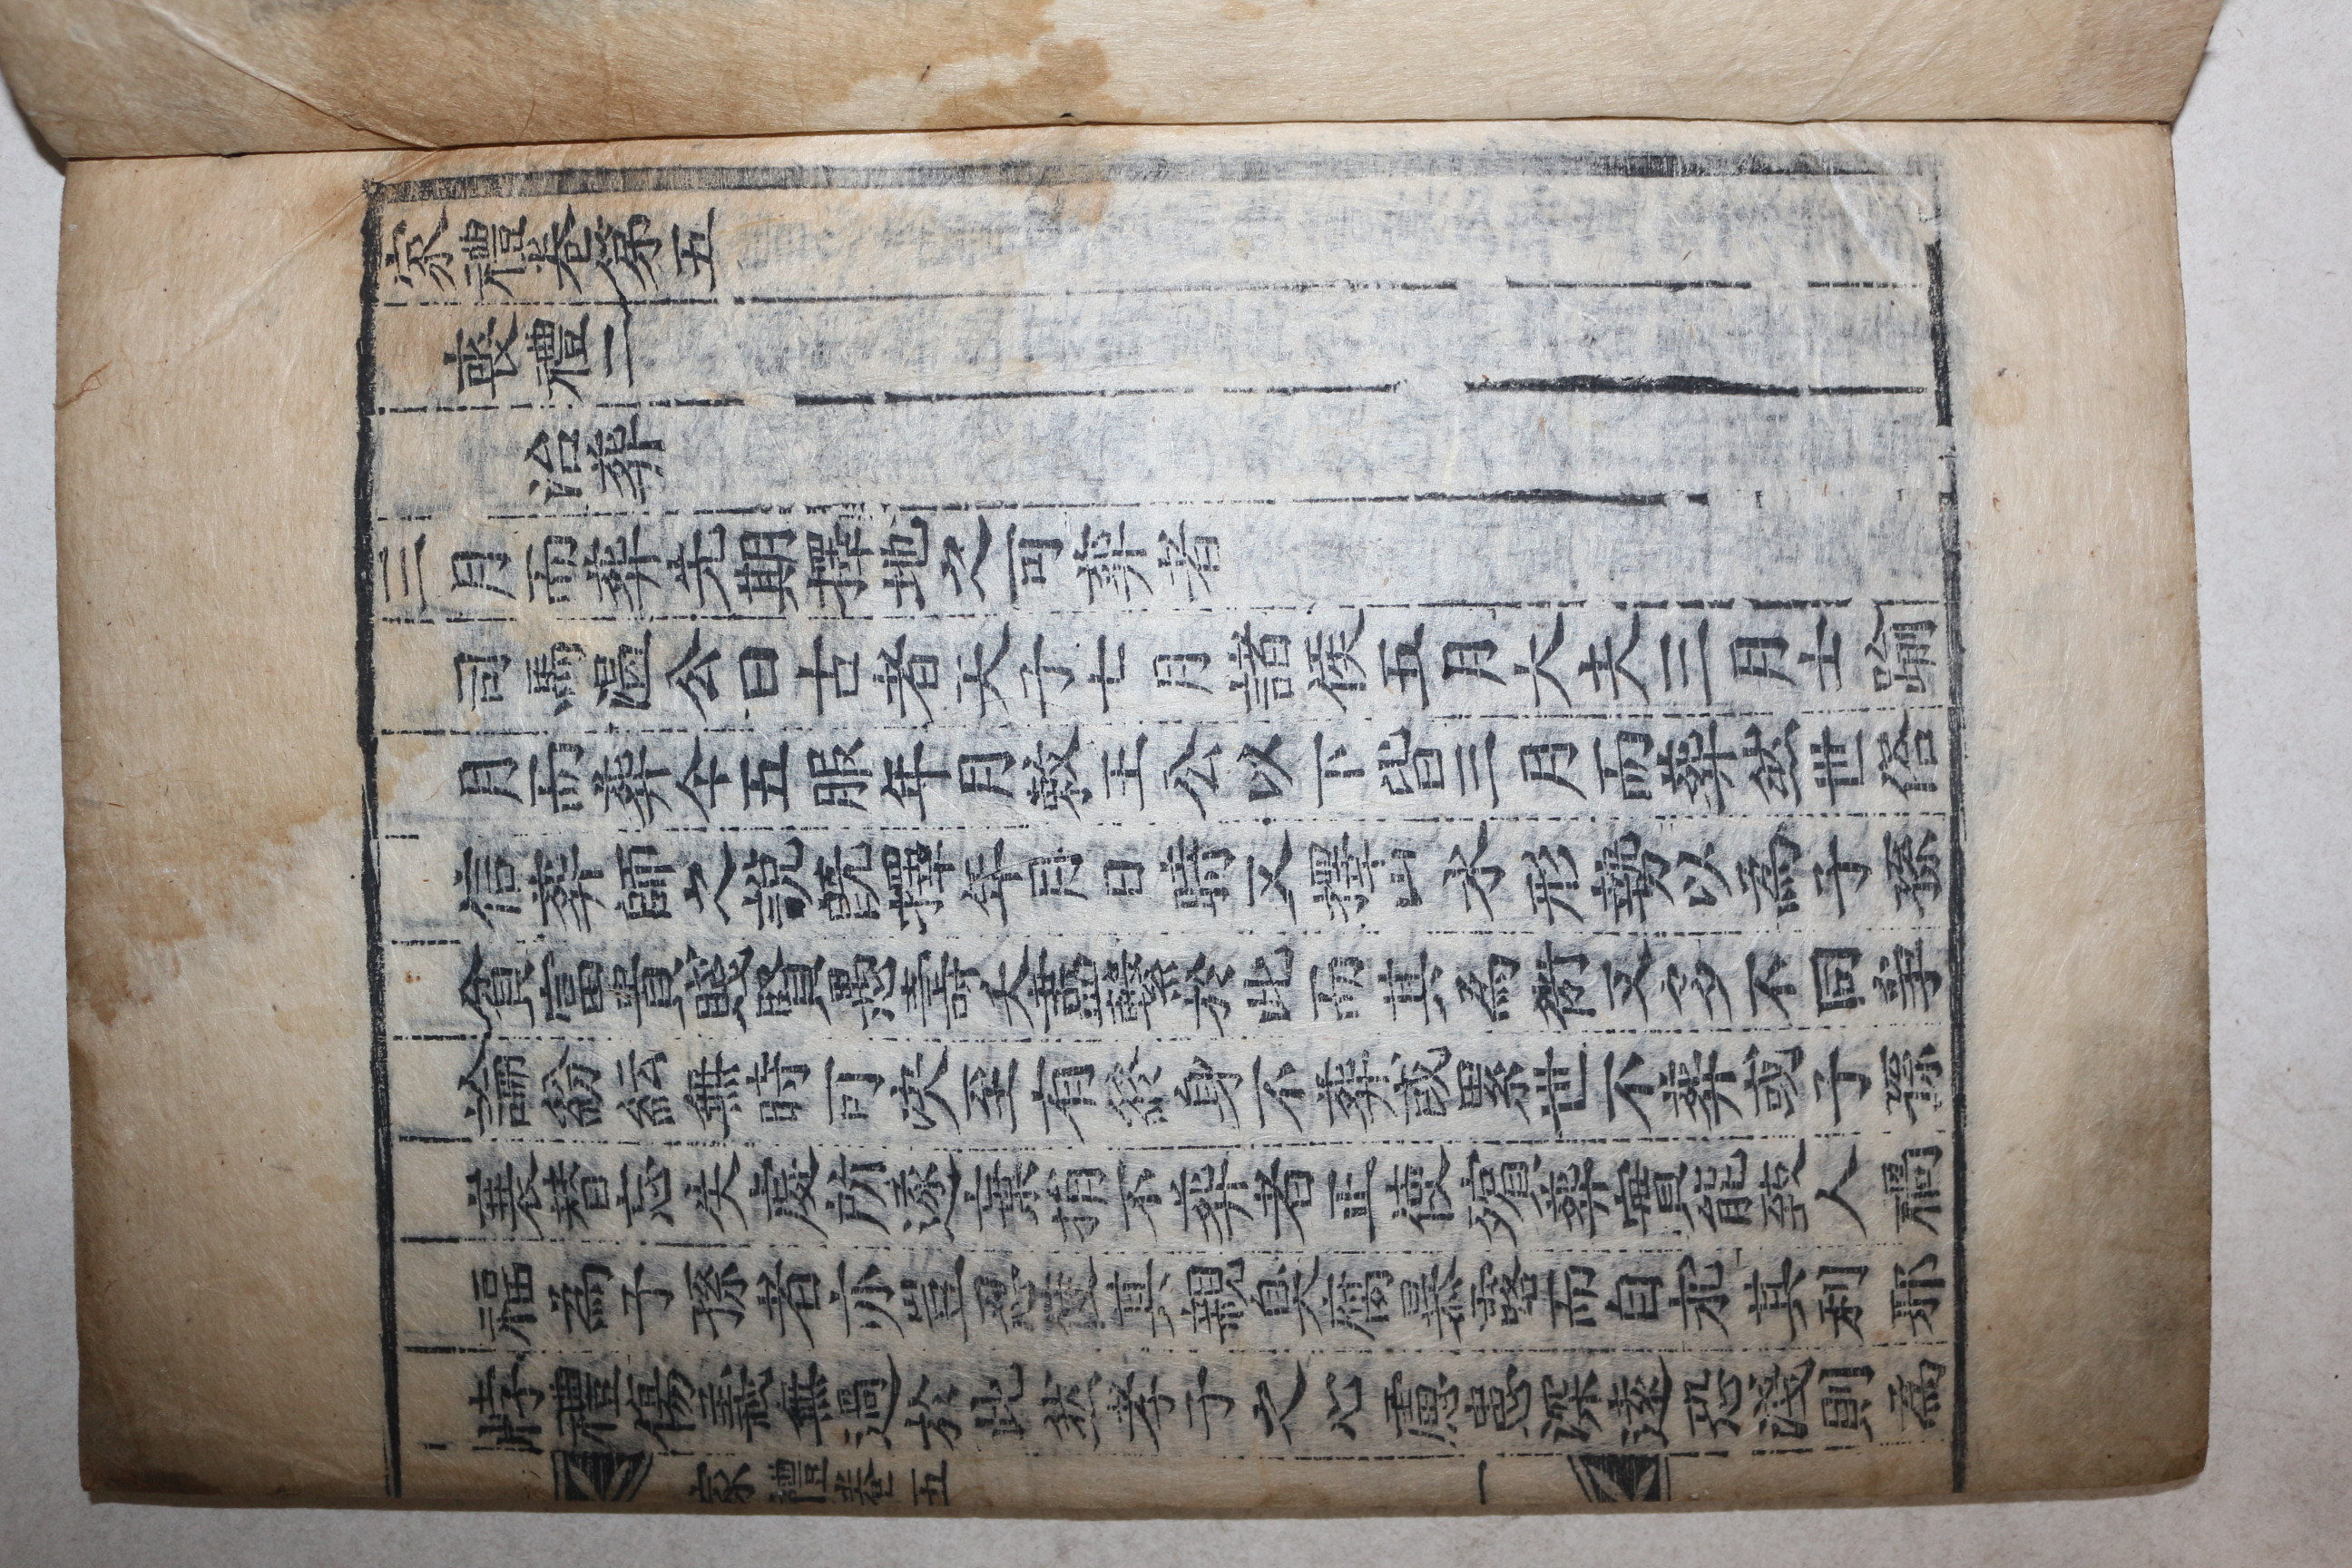 家禮卷第五
喪禮二
治葬
三月而葬先期擇地之可葬者
司馬溫公曰古者天子七月諸侯五月大夫三月士踰
月而葬今五服年月敕王公以下皆三月而葬然世俗
信葬師之說旣擇年月日時又擇山水形勢以爲子孫
貧富貴賤賢愚壽夭盡繫於此而其爲術又多不同爭
論紛紜無時可決至有終身不葬或累世不葬或子孫
衰替忘失處所遂棄捐不葬者正使殯葬實能致人禍
福爲子孫者亦豈忍使其親臭腐暴露而自求其利耶
悖禮傷義無過於此然孝子之心慮患深遠恐淺則爲
家禮卷五 一